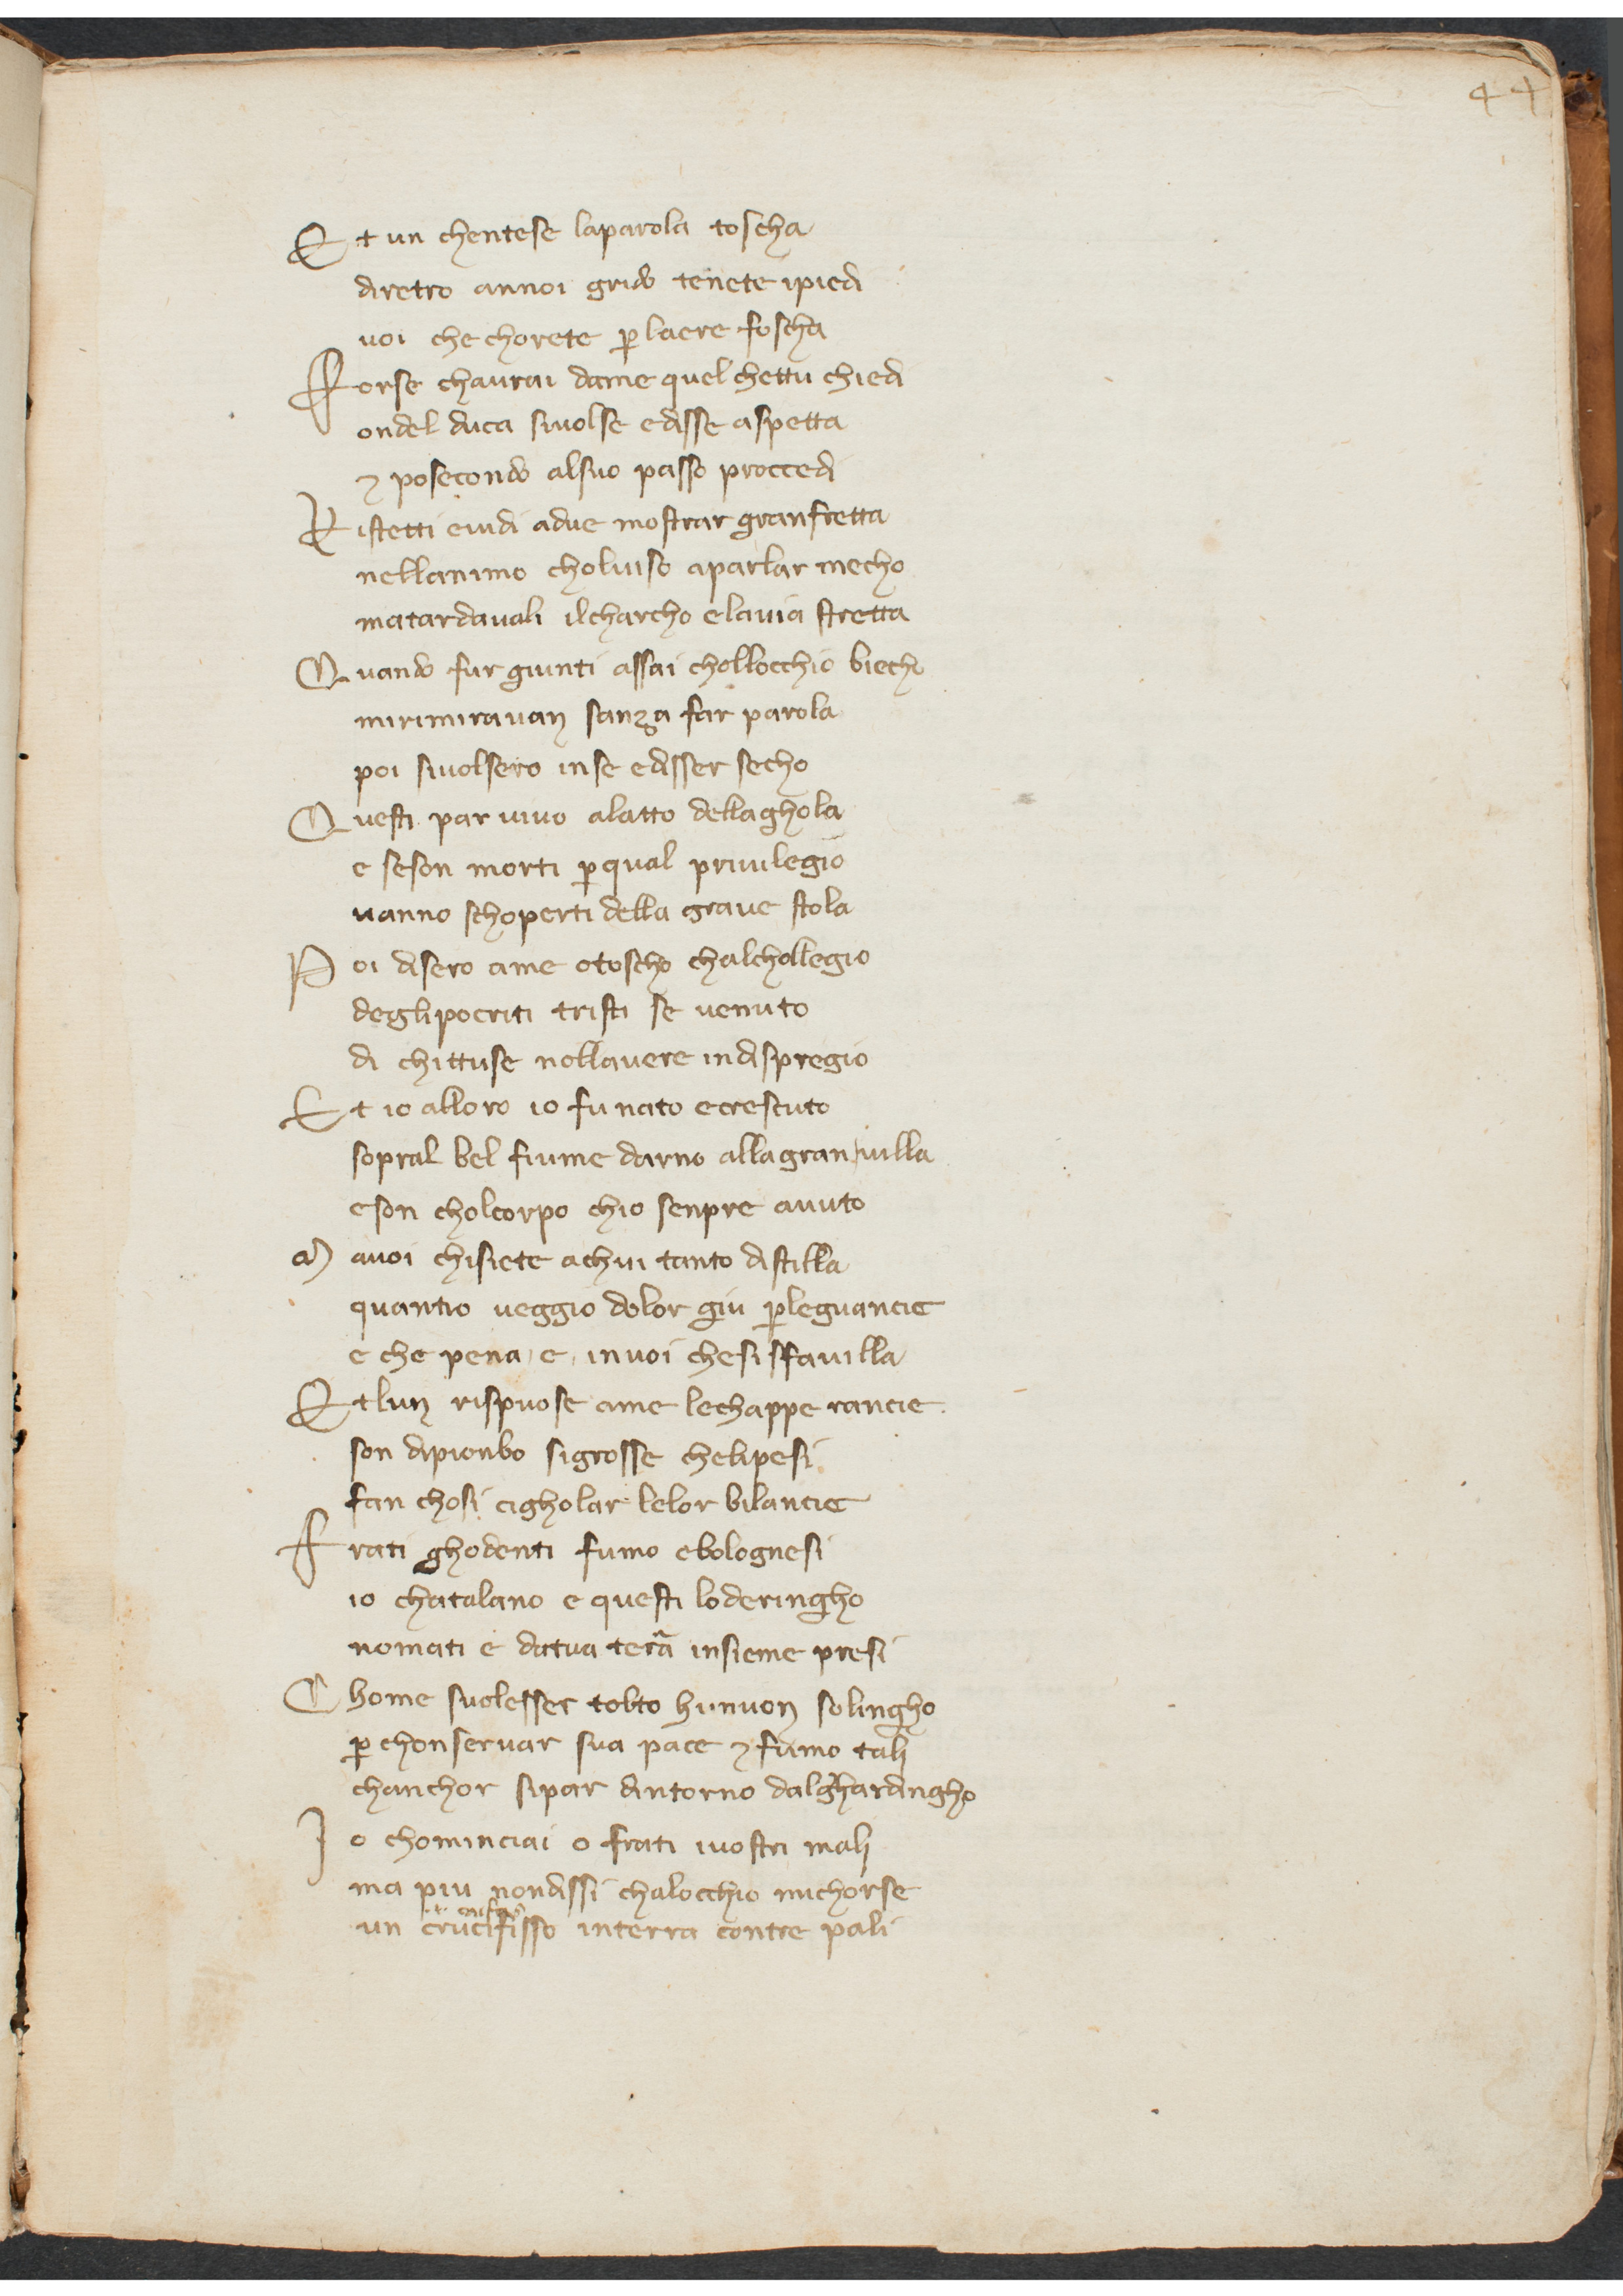 44
Et un chentese laparola toscha
diretro annoi grido tenete ipiedi
uoi che chorete ꝑ laere foscha
Forse chaurai dame quel chettu chiedi
ondel duca siuolse edisse aspetta
⁊ posecondo alsuo passo proccedi
Ristetti euidi adue mostrar granfretta
nellanimo choluiso aparlar mecho
matardauali ilcharcho elauia stretta
Quando fur giunti assai chollocchio biecho
mirimirauan sanza far parola
poi siuolsero inse edisser secho
Questi par uiuo alatto dellaghola
e seson morti ꝑqual priuilegio
uanno schoperti della graue stola
Poi disero ame otoscho chalchollegio
deglipocriti tristi se uenuto
di chittuse nollauere indispregio
Et io alloro io fu nato ecresciuto
sopral bel fiume darno allagran uilla
eson cholcorpo chio senpre auuto
Mauoi chisiete achui tanto distilla
quantio ueggio dolor giu ꝑleguancie
e che pena e inuoi chesi sfauilla
Et lun rispuose ame lechappe rancie
son dipionbo sigrosse chelipesi
fan chosi cigholar lelor bilancie
Frati ghodenti fumo ebolognesi
io chatalano e questi loderingho
nomati e datua tera insieme presi
Chome suolesser tolto hunuon solingho
ꝑ chonseruar sua pace ⁊ fumo tali
chanchor sipar dintorno dalghardingho
Io chominciai o frati iuostri mali
ma piu nondissi chalocchio michorse
un crucifisso interra contre pali